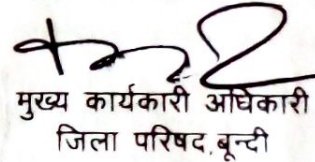 मुख्य कार्यकारी अधिकारी
जिला परिषद, बून्दी